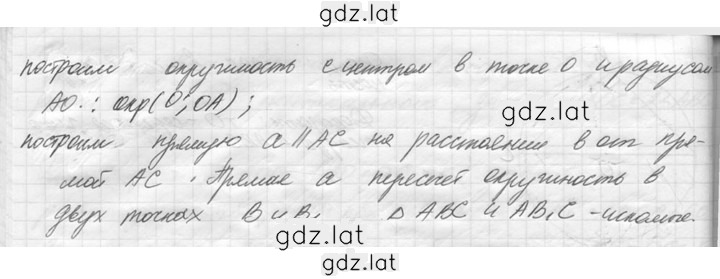 gdz.lat
построим окружность с центром в точке O и радиусом
AO.: окр(O; OA);
gdz.lat
построим прямую a || AC на расстоянии b от пря-
мой AC. Прямая a пересечёт окружность в
двух точках B и B₁ △ ABC и AB₁C - искомые.
gdz.lat